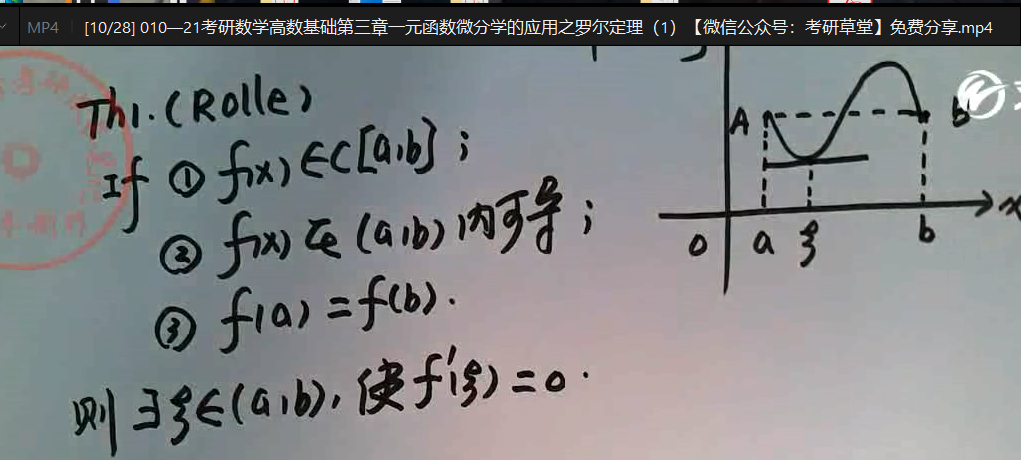 MP4 [10/28] 010—21考研数学高数基础第三章一元函数微分学的应用之罗尔定理（1）【微信公众号：考研草堂】免费分享.mp4
Th1. (Rolle)
If ① f(x)∈C[a,b];
② f(x)在(a,b)内可导;
③ f(a)=f(b).
则∃ξ∈(a,b),使f′(ξ)=0.
A b
0 a ξ b x